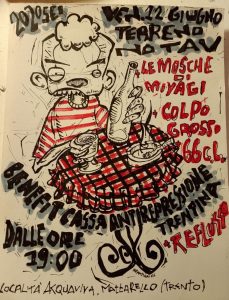 2020SBEL
VEN.12 GIUGNO
TERRENO
NO TAV
+LE MOSCHE
DI
MIYAGI
+COLPO
GROSSO
+66CL.
+REFLUSSO
BENEFIT CASSA ANTIREPRESSIONE
TRENTINA
DALLE ORE
19:00
LOCALITÁ ACQUAVIVA, MATTARELLO (TRENTO)